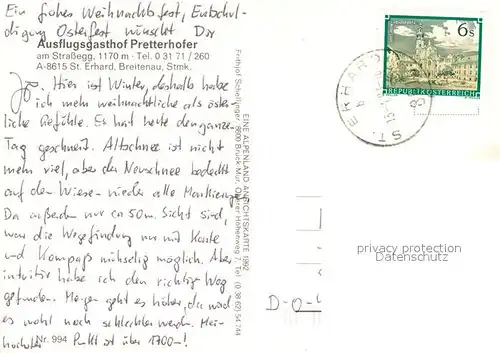 Ein frohes Weihnachtsfest, Entschul-
digung Osterfest wünscht Dir
Ausflugsgasthof Pretterhofer
am Straßegg, 1170 m · Tel. 0 31 71 / 260
A-8615 St. Erhard, Breitenau, Stmk.
Hier ist Winter, deshalb habe
ich mehr weihnachtliche als öster-
liche Gefühle. Es hat heute den ganzen
Tag geschneit. Altschnee ist nicht
mehr viel, aber der Neuschnee bedeckt
auf den Wiesen wieder alle Markierungen
Da außerdem nur ca 50m. Sicht sind,
war die Wegefindung nur mit Karte
und Kompaß mühselig möglich. Aber
intuitiv habe ich den richtigen Weg
gefunden. Morgen geht es höher, da wird
es wohl noch schlechter werden. Mein
höchster Punkt ist über 1700-!
Nr. 994
EINE ALPENLAND ANSICHTSKARTE 1992
Frithjof Schoflinger · 8600 Bruck/Mur, Oberer Höhenweg 7, Tel. (0 38 62) 54 744
6 S
REPUBLIK ÖSTERREICH
ST. ERHARD
D-0-
privacy protection
Datenschutz